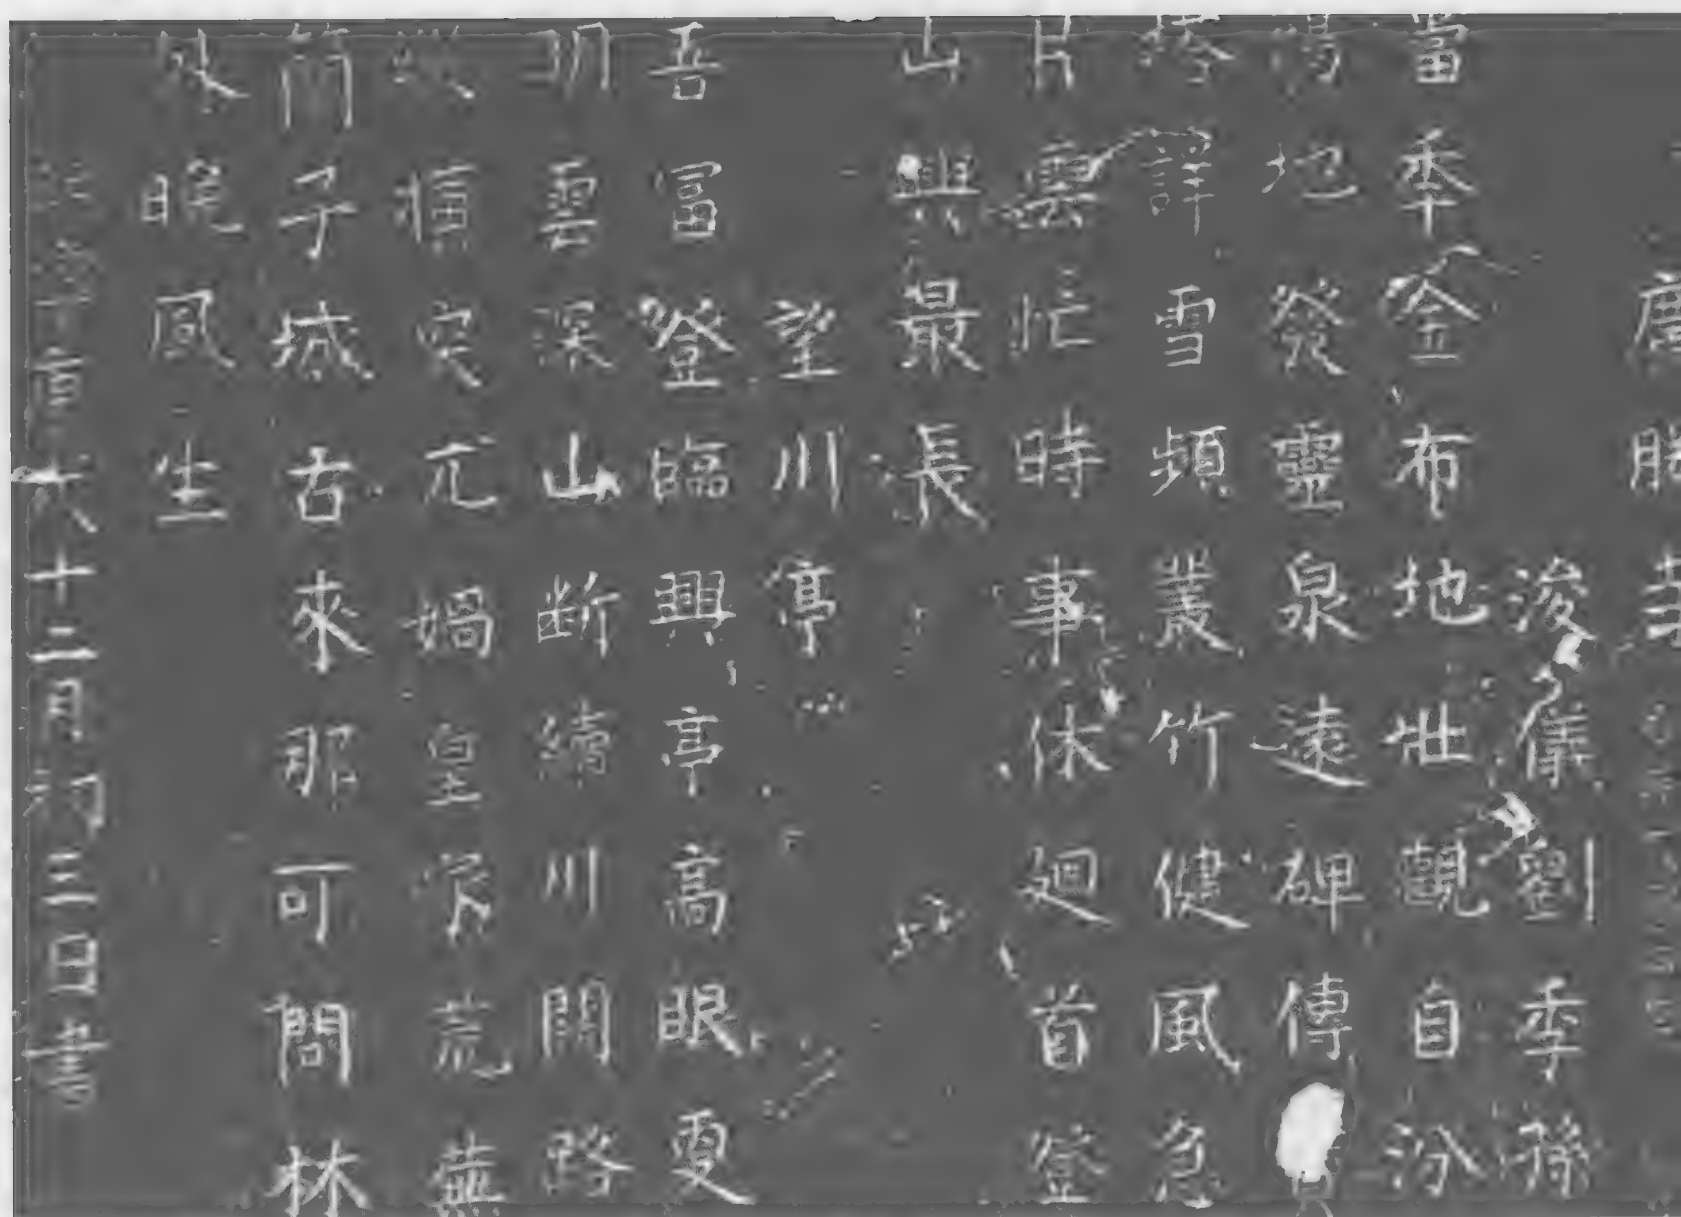 廣勝
浚儀劉季孫
當季金布地壯觀自汾
陽地發靈泉遠碑傳
塔諍雪頻叢竹健風急
片雲忙時事休廻首登
山興最長
望川亭
吾冨登臨興亭高眼更
明雲深山断續川闊路
横突兀媧皇荒蕪
簡子城古來那可問林
晚風生
六十二月初三日書